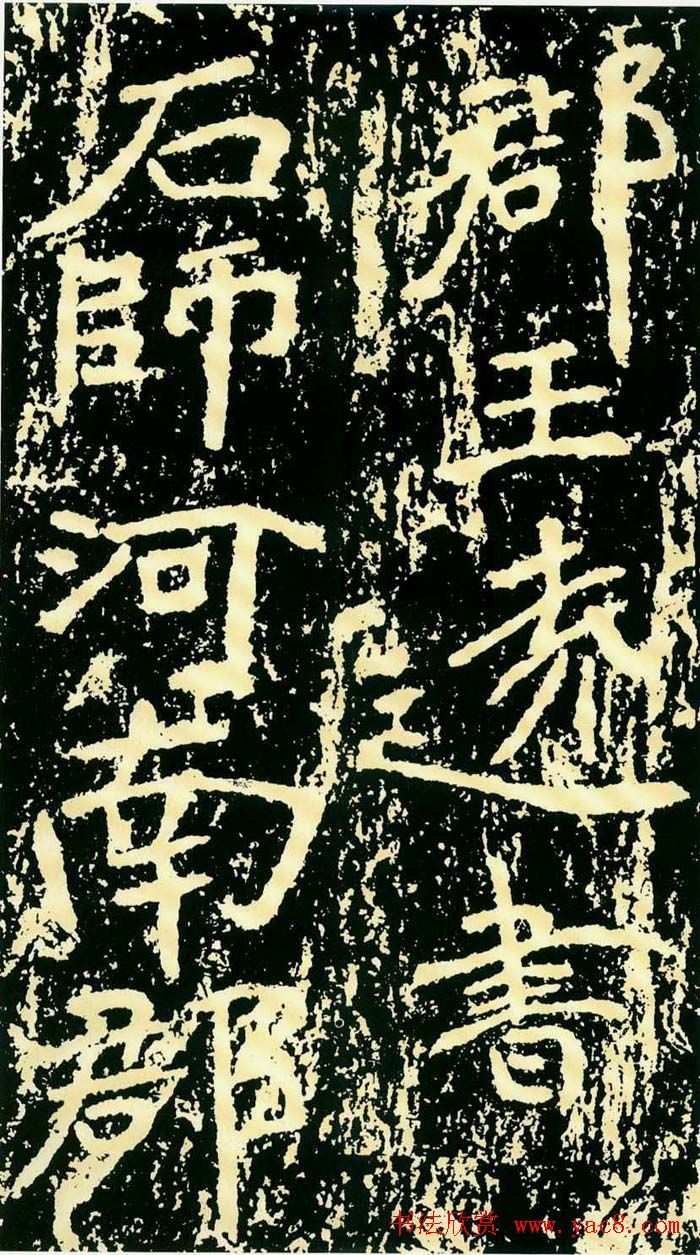 郡王遠書
石師河南郡
书法欣赏 www.yac8.com